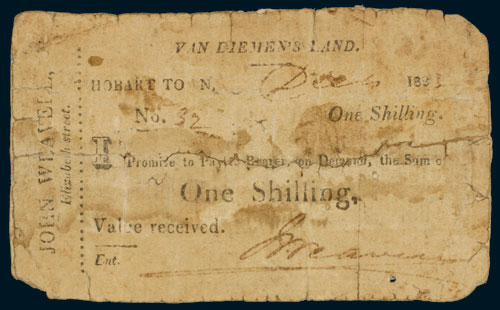 JOHN WEAVELL,
Elizabeth street.
VAN DIEMEN'S LAND.
HOBART TOWN, Dec 182
No. 32 One Shilling.
I Promise to Pay the Bearer, on Demand, the Sum o
One Shilling,
Value received.
Ent.